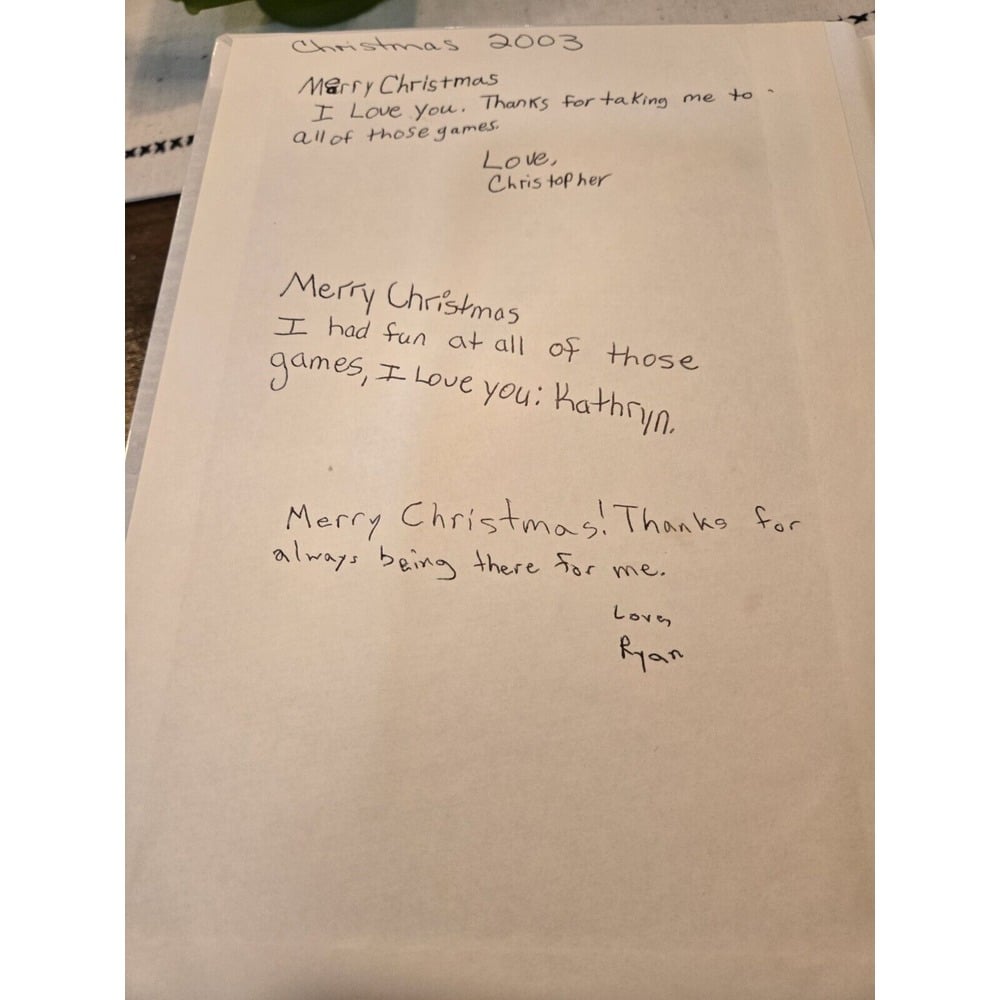 Christmas 2003
Merry Christmas
I Love you. Thanks for taking me to
all of those games.
Love,
Christopher
Merry Christmas
I had fun at all of those
games, I Love you: Kathryn.
Merry Christmas! Thanks for
always being there for me.
Love,
Ryan